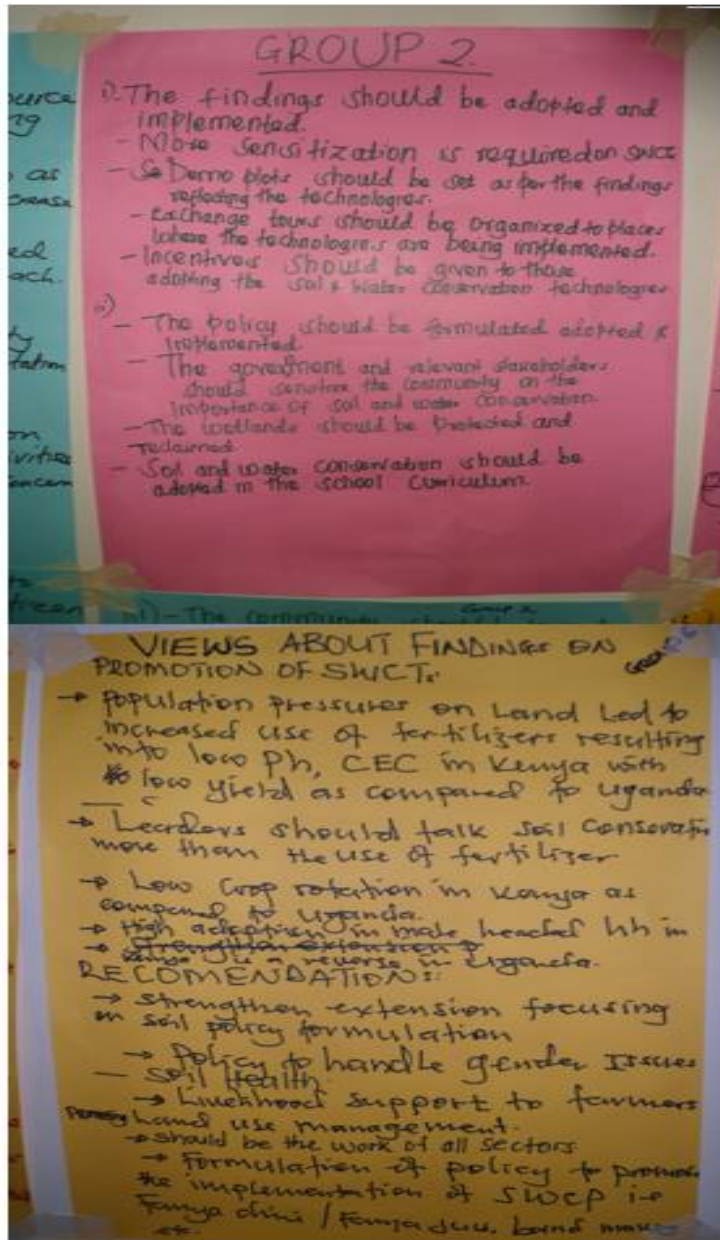 GROUP 2.
i). The findings should be adopted and
implemented.
- More sensitization is required on SWCT
- Demo plots should be set as per the findings
reflecting the technologies.
- Exchange tours should be organized to places
where the technologies are being implemented.
- Incentives should be given to those
adopting the soil & water conservation technologies
ii)
- The policy should be formulated adopted &
implemented.
- The government and relevant stakeholders
should sensitize the community on the
importance of soil and water conservation.
- The wetlands should be protected and
reclaimed.
- Soil and water conservation should be
adopted in the school curriculum.
iii) - The community should
VIEWS ABOUT FINDINGS ON
PROMOTION OF SWCT:
→ Population pressures on Land Led to
increased use of fertilizers resulting
into low Ph, CEC in Kenya with
low yield as compared to Uganda
→ Leaders should talk soil
more than the use of fertilizer
→ Low crop rotation in Kenya as
compared to Uganda.
→ High adoption in male headed hh in
→ Strengthen extension
Kenya is a reverse in Uganda.
RECOMENDATIONS:
→ Strengthen extension focusing
on soil policy formulation
→ Policy to handle gender issues
- Soil Health
→ Livelihood support to farmers
Land use management.
→ should be the work of all sectors
→ Formulation of policy to
the implementation of SWCP i.e
Fanya chini / Fanya juu, band
etc.